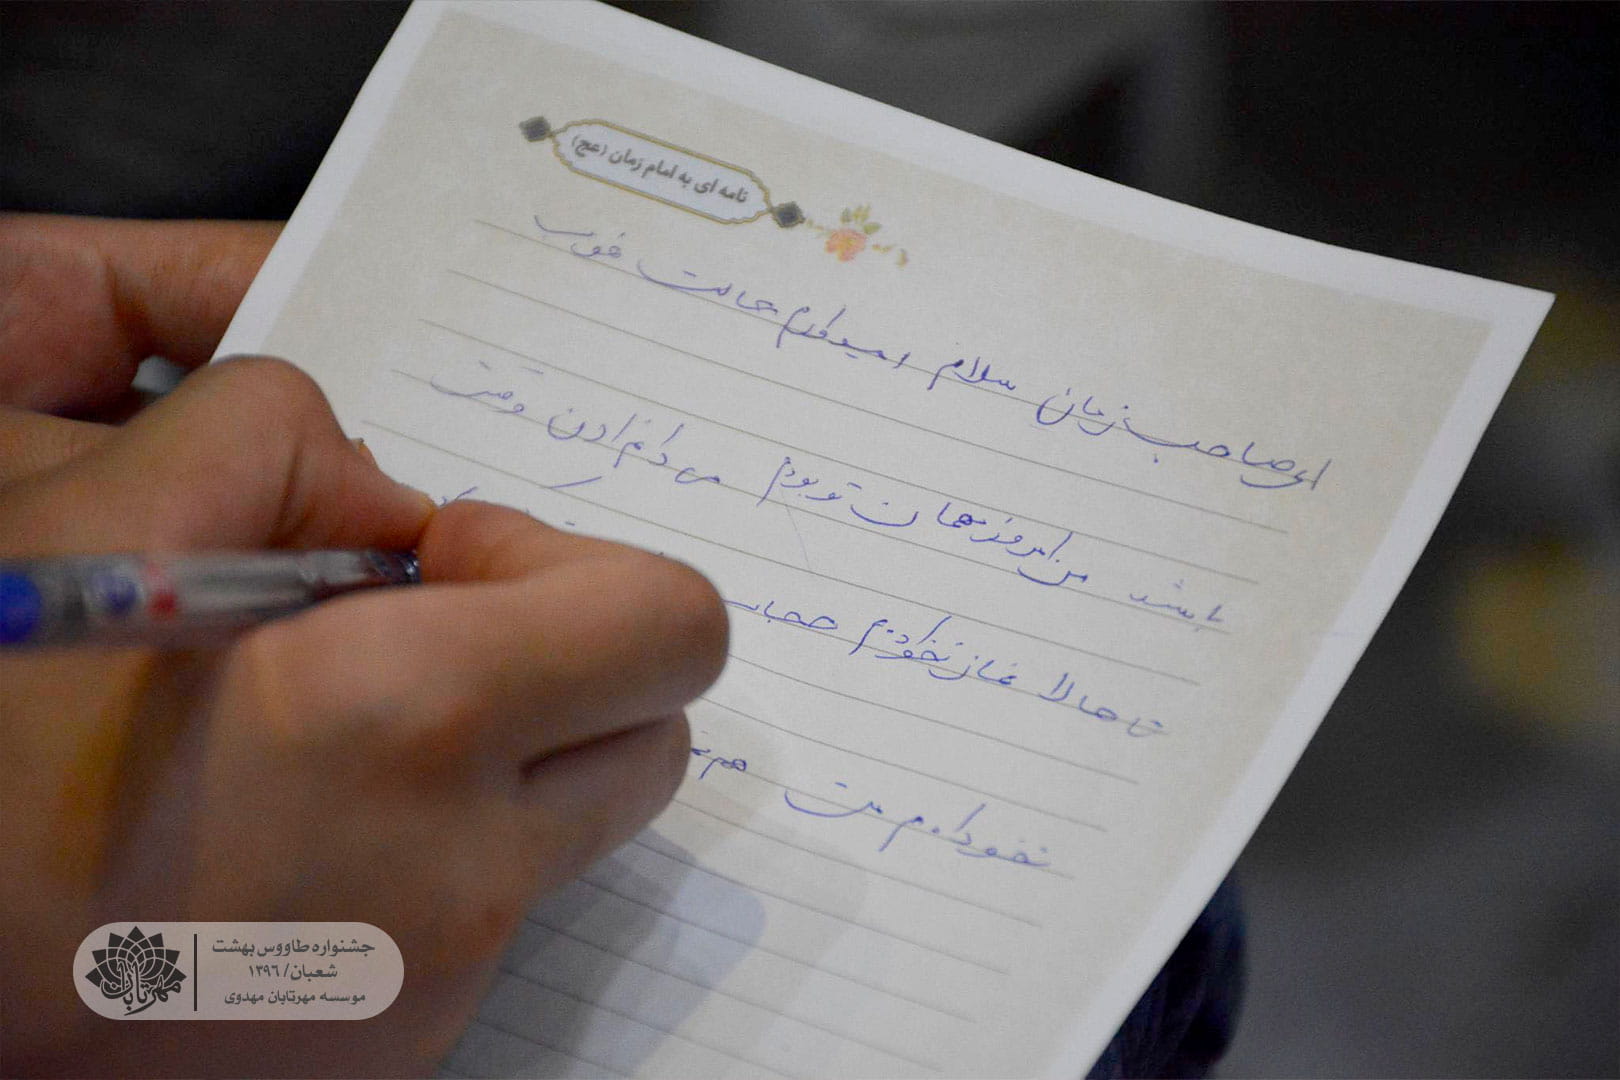 نامه ای به امام زمان (عج)
ای صاحب زمان سلام امیدوارم حالت خوب
باشد من امروز مهمان تو بودم می دانم ادن وقت
تا حالا نماز نخوندم حجاب
نخوداندم من هم
جشنواره طاووس بهشت
شعبان/ ۱۳۹۶
موسسه مهرتابان مهدوی
مهرتابان